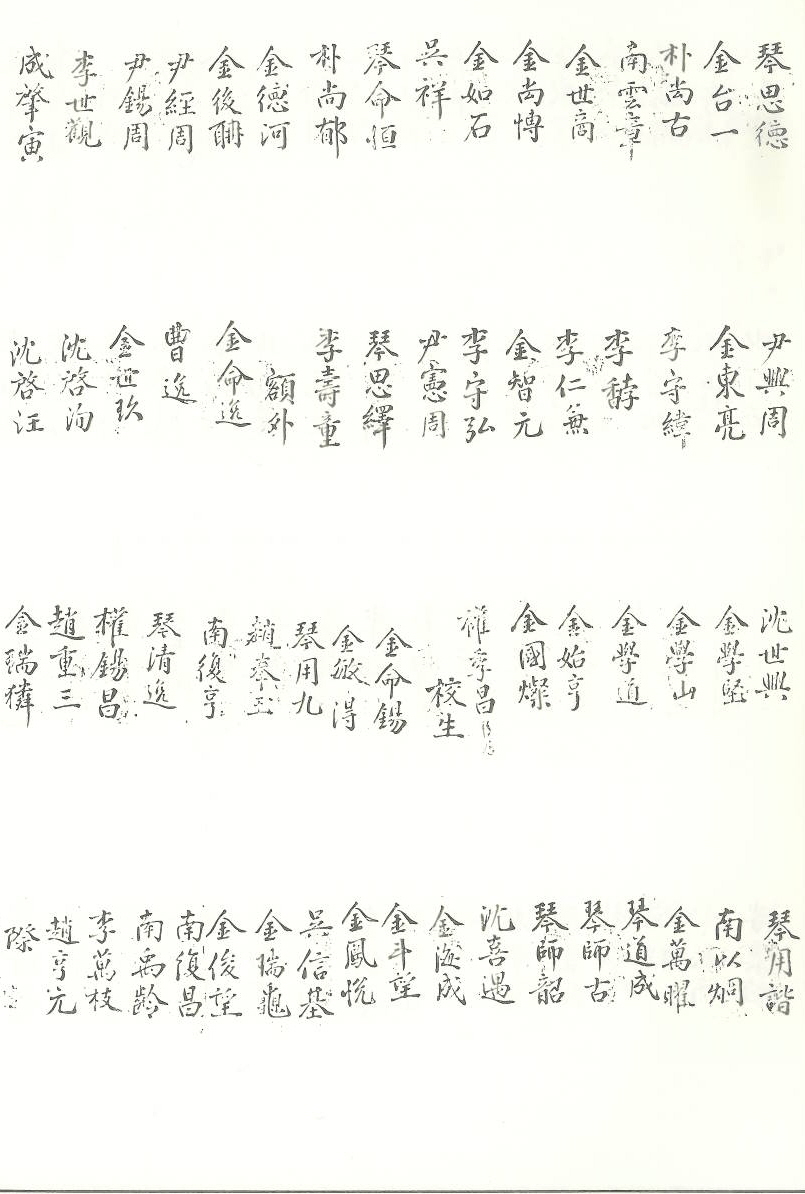 琴思德
金台一
朴尚古
南雲章
金世商
金尚愽
金如石
吳祥
琴命恒
朴尚郁
金德河
金後聃
尹經周
尹錫周
李世觀
成肇寅
尹興周
金東亮
李守緯
李馞
李仁兼
金智元
李守弘
尹憲周
琴思繹
李壽童
額外
金命逸
曹逸
金世玖
沈啓洵
沈啓汪
沈世興
金學堅
金學山
金學道
金始亨
金國燦
權學昌
校生
金命錫
金後淂
琴用九
趙基玉
南復亨
琴清逸
權錫昌
趙重三
金瑞獜
琴用諧
南以炯
金萬曜
琴道成
琴師古
琴師韶
沈喜遇
金海成
金斗望
金鳳悅
吳信基
金瑞龜
金俊望
南復昌
南禹齡
李萬枝
趙亨元
際